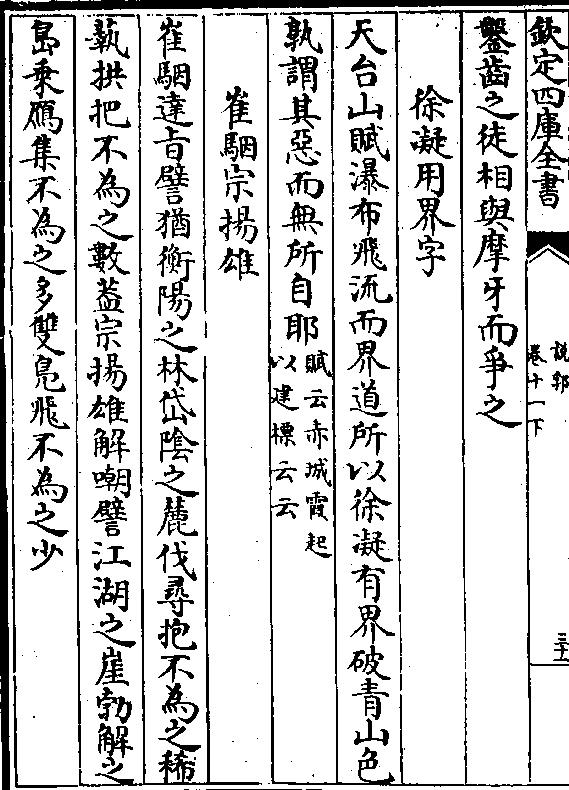 欽定四庫全書
說郛
卷十一下
三十
鑿齒之徒相與摩牙而爭之
徐凝用界字
天台山賦瀑布飛流而界道所以徐凝有界破青山色
孰謂其惡而無所自耶賦云赤城霞起以建標云云
崔駰宗揚雄
崔駰達旨譬猶衡陽之林岱陰之麓伐尋抱不為之稀
蓺拱把不為之數葢宗揚雄解嘲譬江湖之崖勃解之
島乗鴈集不為之多雙鳬飛不為之少